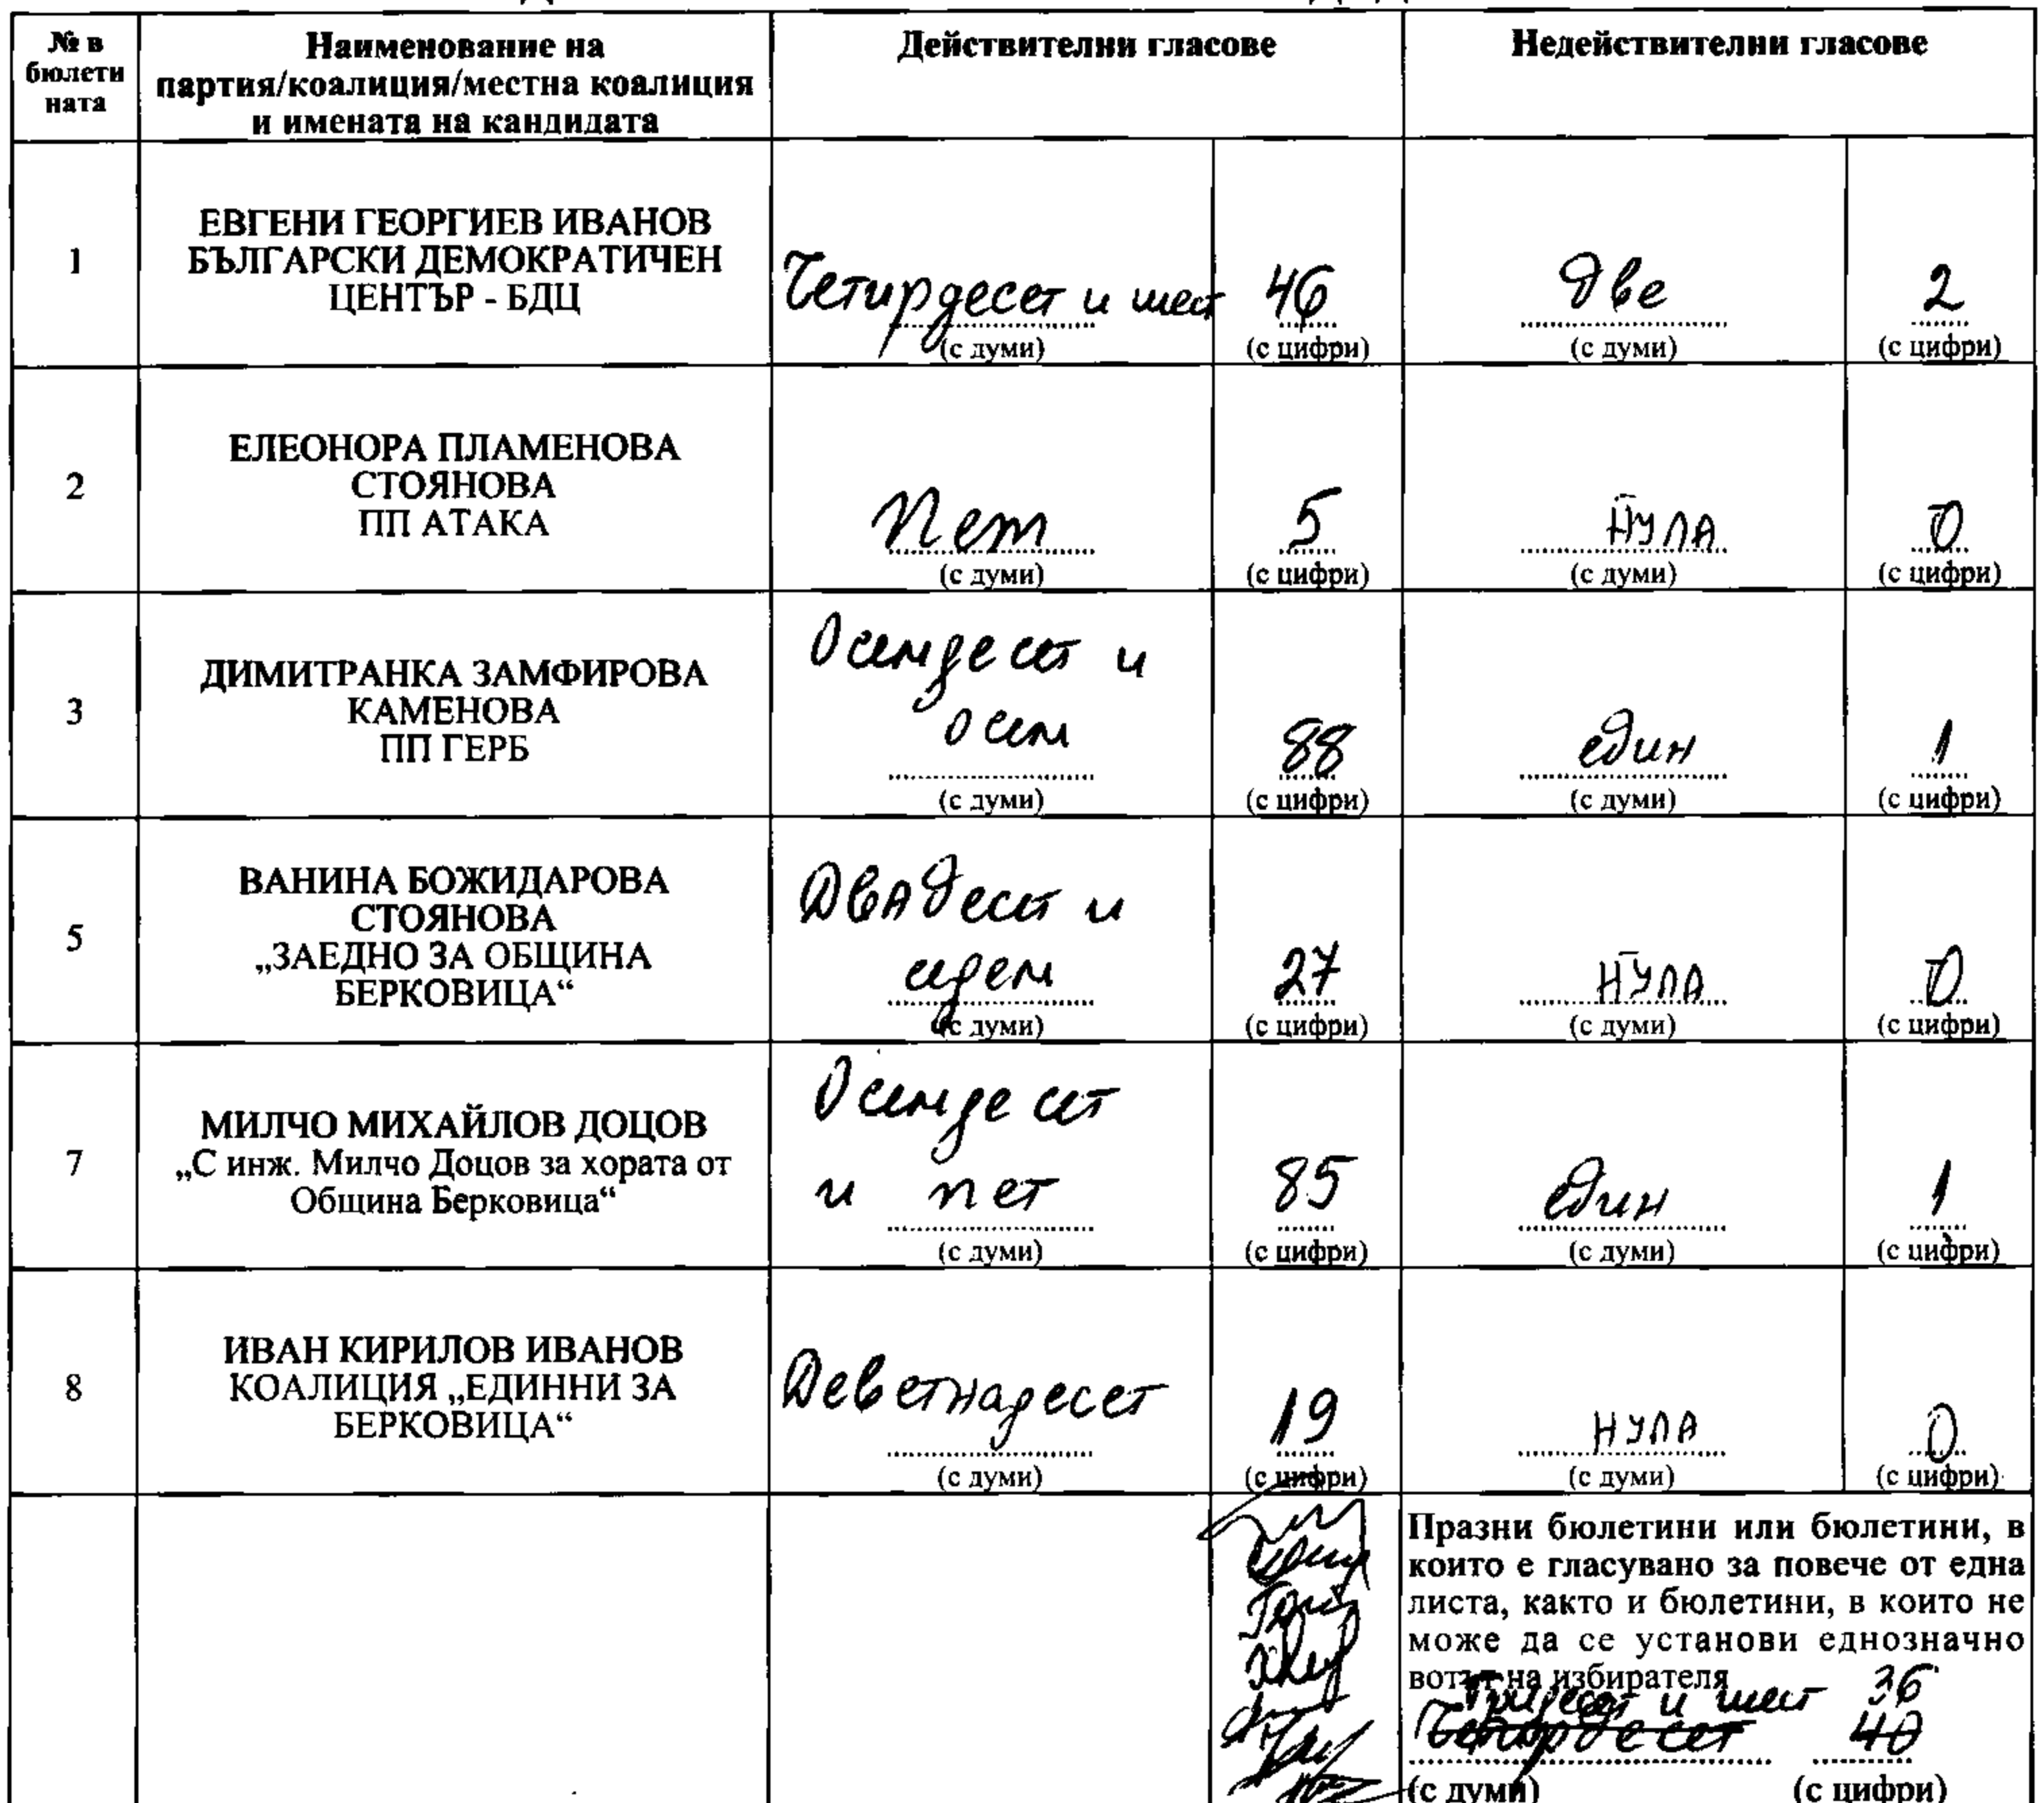 № в
бюлети
ната
Наименование на
партия/коалиция/местна коалиция
и имената на кандидата
Действителни гласове
Недействителни гласове
1
ЕВГЕНИ ГЕОРГИЕВ ИВАНОВ
БЪЛГАРСКИ ДЕМОКРАТИЧЕН
ЦЕНТЪР - БДЦ
Четирдесет и шест
(с думи)
46
(с цифри)
две
(с думи)
2
(с цифри)
2
ЕЛЕОНОРА ПЛАМЕНОВА
СТОЯНОВА
ПП АТАКА
Пет
(с думи)
5
(с цифри)
НУЛА
(с думи)
0
(с цифри)
3
ДИМИТРАНКА ЗАМФИРОВА
КАМЕНОВА
ПП ГЕРБ
Осемдесет и
осем
(с думи)
88
(с цифри)
един
(с думи)
1
(с цифри)
5
ВАНИНА БОЖИДАРОВА
СТОЯНОВА
„ЗАЕДНО ЗА ОБЩИНА
БЕРКОВИЦА“
Двадесет и
седем
(с думи)
27
(с цифри)
НУЛА
(с думи)
0
(с цифри)
7
МИЛЧО МИХАЙЛОВ ДОЦОВ
„С инж. Милчо Доцов за хората от
Община Берковица“
Осемдесет
и пет
(с думи)
85
(с цифри)
един
(с думи)
1
(с цифри)
8
ИВАН КИРИЛОВ ИВАНОВ
КОАЛИЦИЯ „ЕДИННИ ЗА
БЕРКОВИЦА“
Деветнадесет
(с думи)
19
(с цифри)
НУЛА
(с думи)
0
(с цифри)
Празни бюлетини или бюлетини, в
които е гласувано за повече от една
листа, както и бюлетини, в които не
може да се установи еднозначно
вотът на избирателя
Тридесет и шест 36
Четирдесет 40
(с думи) (с цифри)